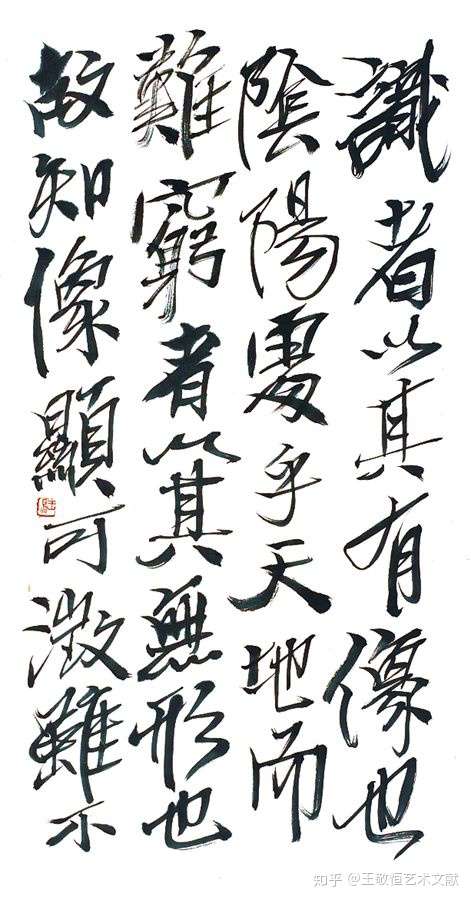 識者以其有像也
陰陽處乎天地而
難窮者以其無形也
故知像顯可徵雖不
知乎 @王敬恒艺术文献